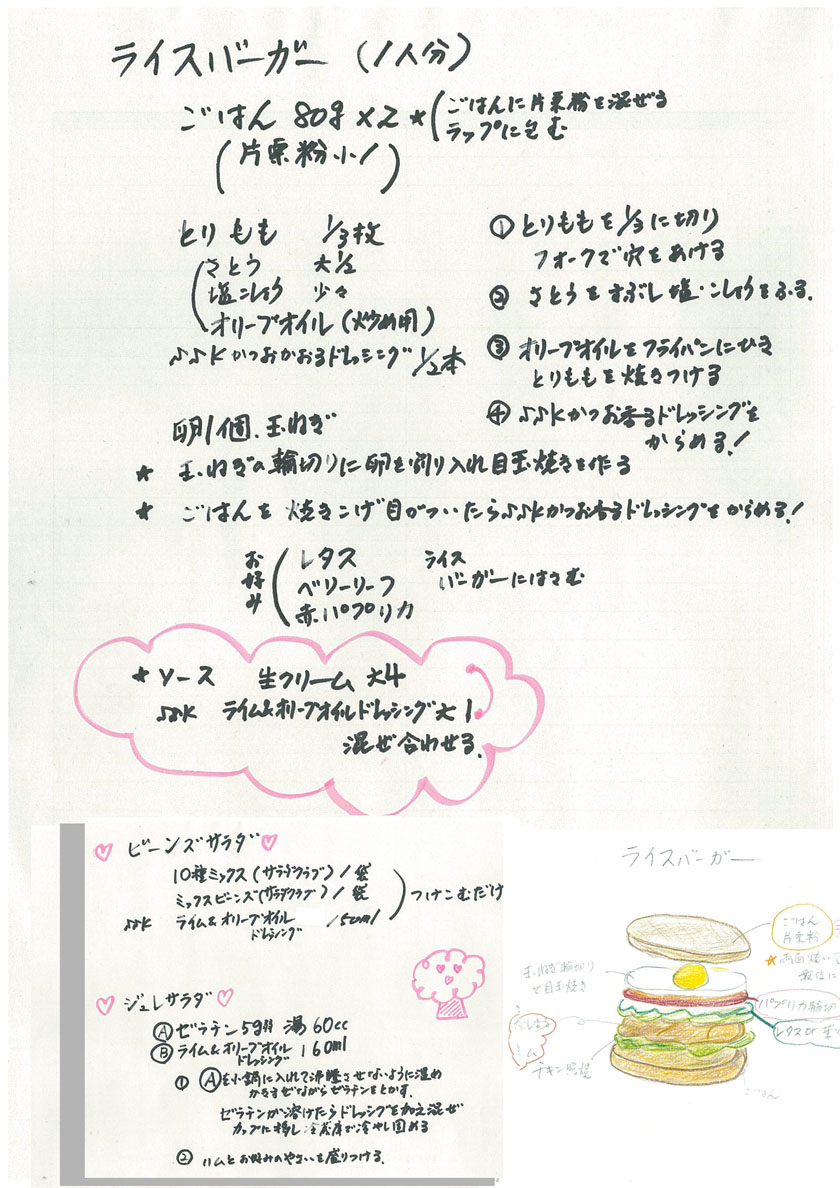 ライスバーガー (1人分)
ごはん 80g×2 ★
ごはんに片栗粉を混ぜる
ラップに包む
(片栗粉 小1)
とりもも 1/3枚
さとう 大1/2
塩こしょう 少々
オリーブオイル(炒め用)
SSKかつおかおるドレッシング 1/2本
① とりももを1/3に切り
フォークで穴をあける
② さとうをまぶし塩・こしょうをふる。
③ オリーブオイルをフライパンにひき
とりももを焼きつける
④ SSKかつお香るドレッシングを
からめる!
卵1個、玉ねぎ
★ 玉ねぎの輪切りに卵を割り入れ目玉焼きを作る
★ ごはんを焼きこげ目がついたらSSKかつお香るドレッシングをからめる!
お好み
レタス
ベリーリーフ
赤パプリカ
ライス
バーガーにはさむ
★ソース 生クリーム 大4
SSK ライム&オリーブオイルドレッシング大1
混ぜ合わせる。
ビーンズサラダ
10種ミックス(サラダクラブ)1袋
ミックスビーンズ(サラダクラブ)1袋
SSK ライム&オリーブオイル 150ml
ドレッシング
つけこむだけ
ジュレサラダ
Ⓐ ゼラチン5g 湯60cc
Ⓑ ライム&オリーブオイル 160ml
ドレッシング
① Ⓐを小鍋に入れて沸騰させないように温め
かきまぜながらゼラチンをとかす。
ゼラチンが溶けたらドレッシングを加え混ぜ
カップに移し冷蔵庫で冷やし固める
② ハムとお好みのやさいを盛りつける。
ライスバーガー
ごはん
片栗粉
★両面焼い
最後に
玉ねぎ輪切り
で目玉焼き
パプリカ輪切
レタス or
チキン照焼
ごはん